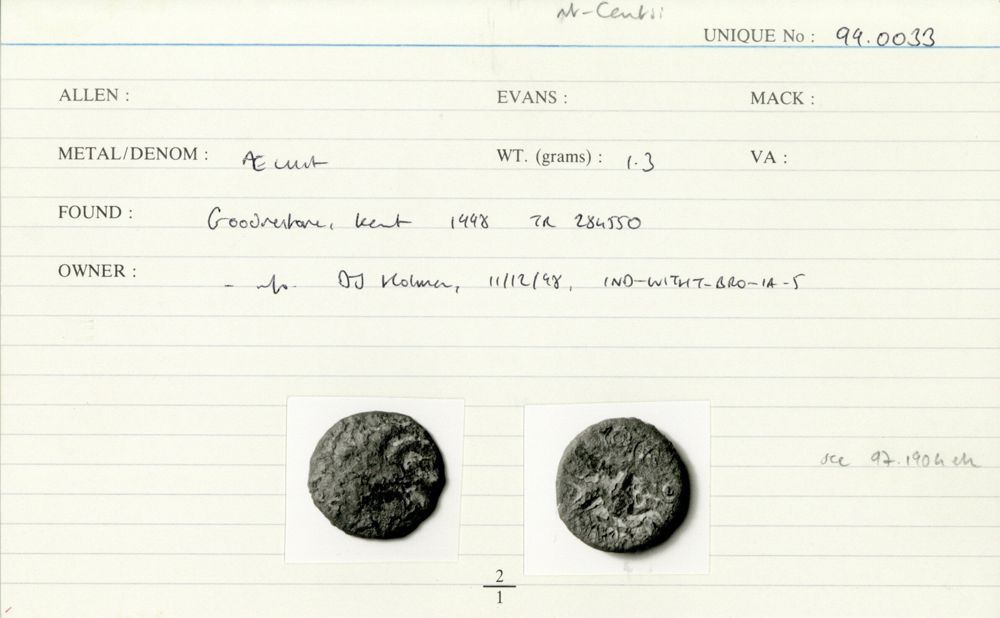 UNIQUE No : 99.0033
ALLEN : EVANS : MACK :
METAL/DENOM : Æ unit WT. (grams) : 1.3 VA :
FOUND : Goodnestone, Kent 1998 TR 284550
OWNER : - info. DJ Holman, 11/12/98, IND-WITHT-BRO-IA-5
see 97.1904
2
1